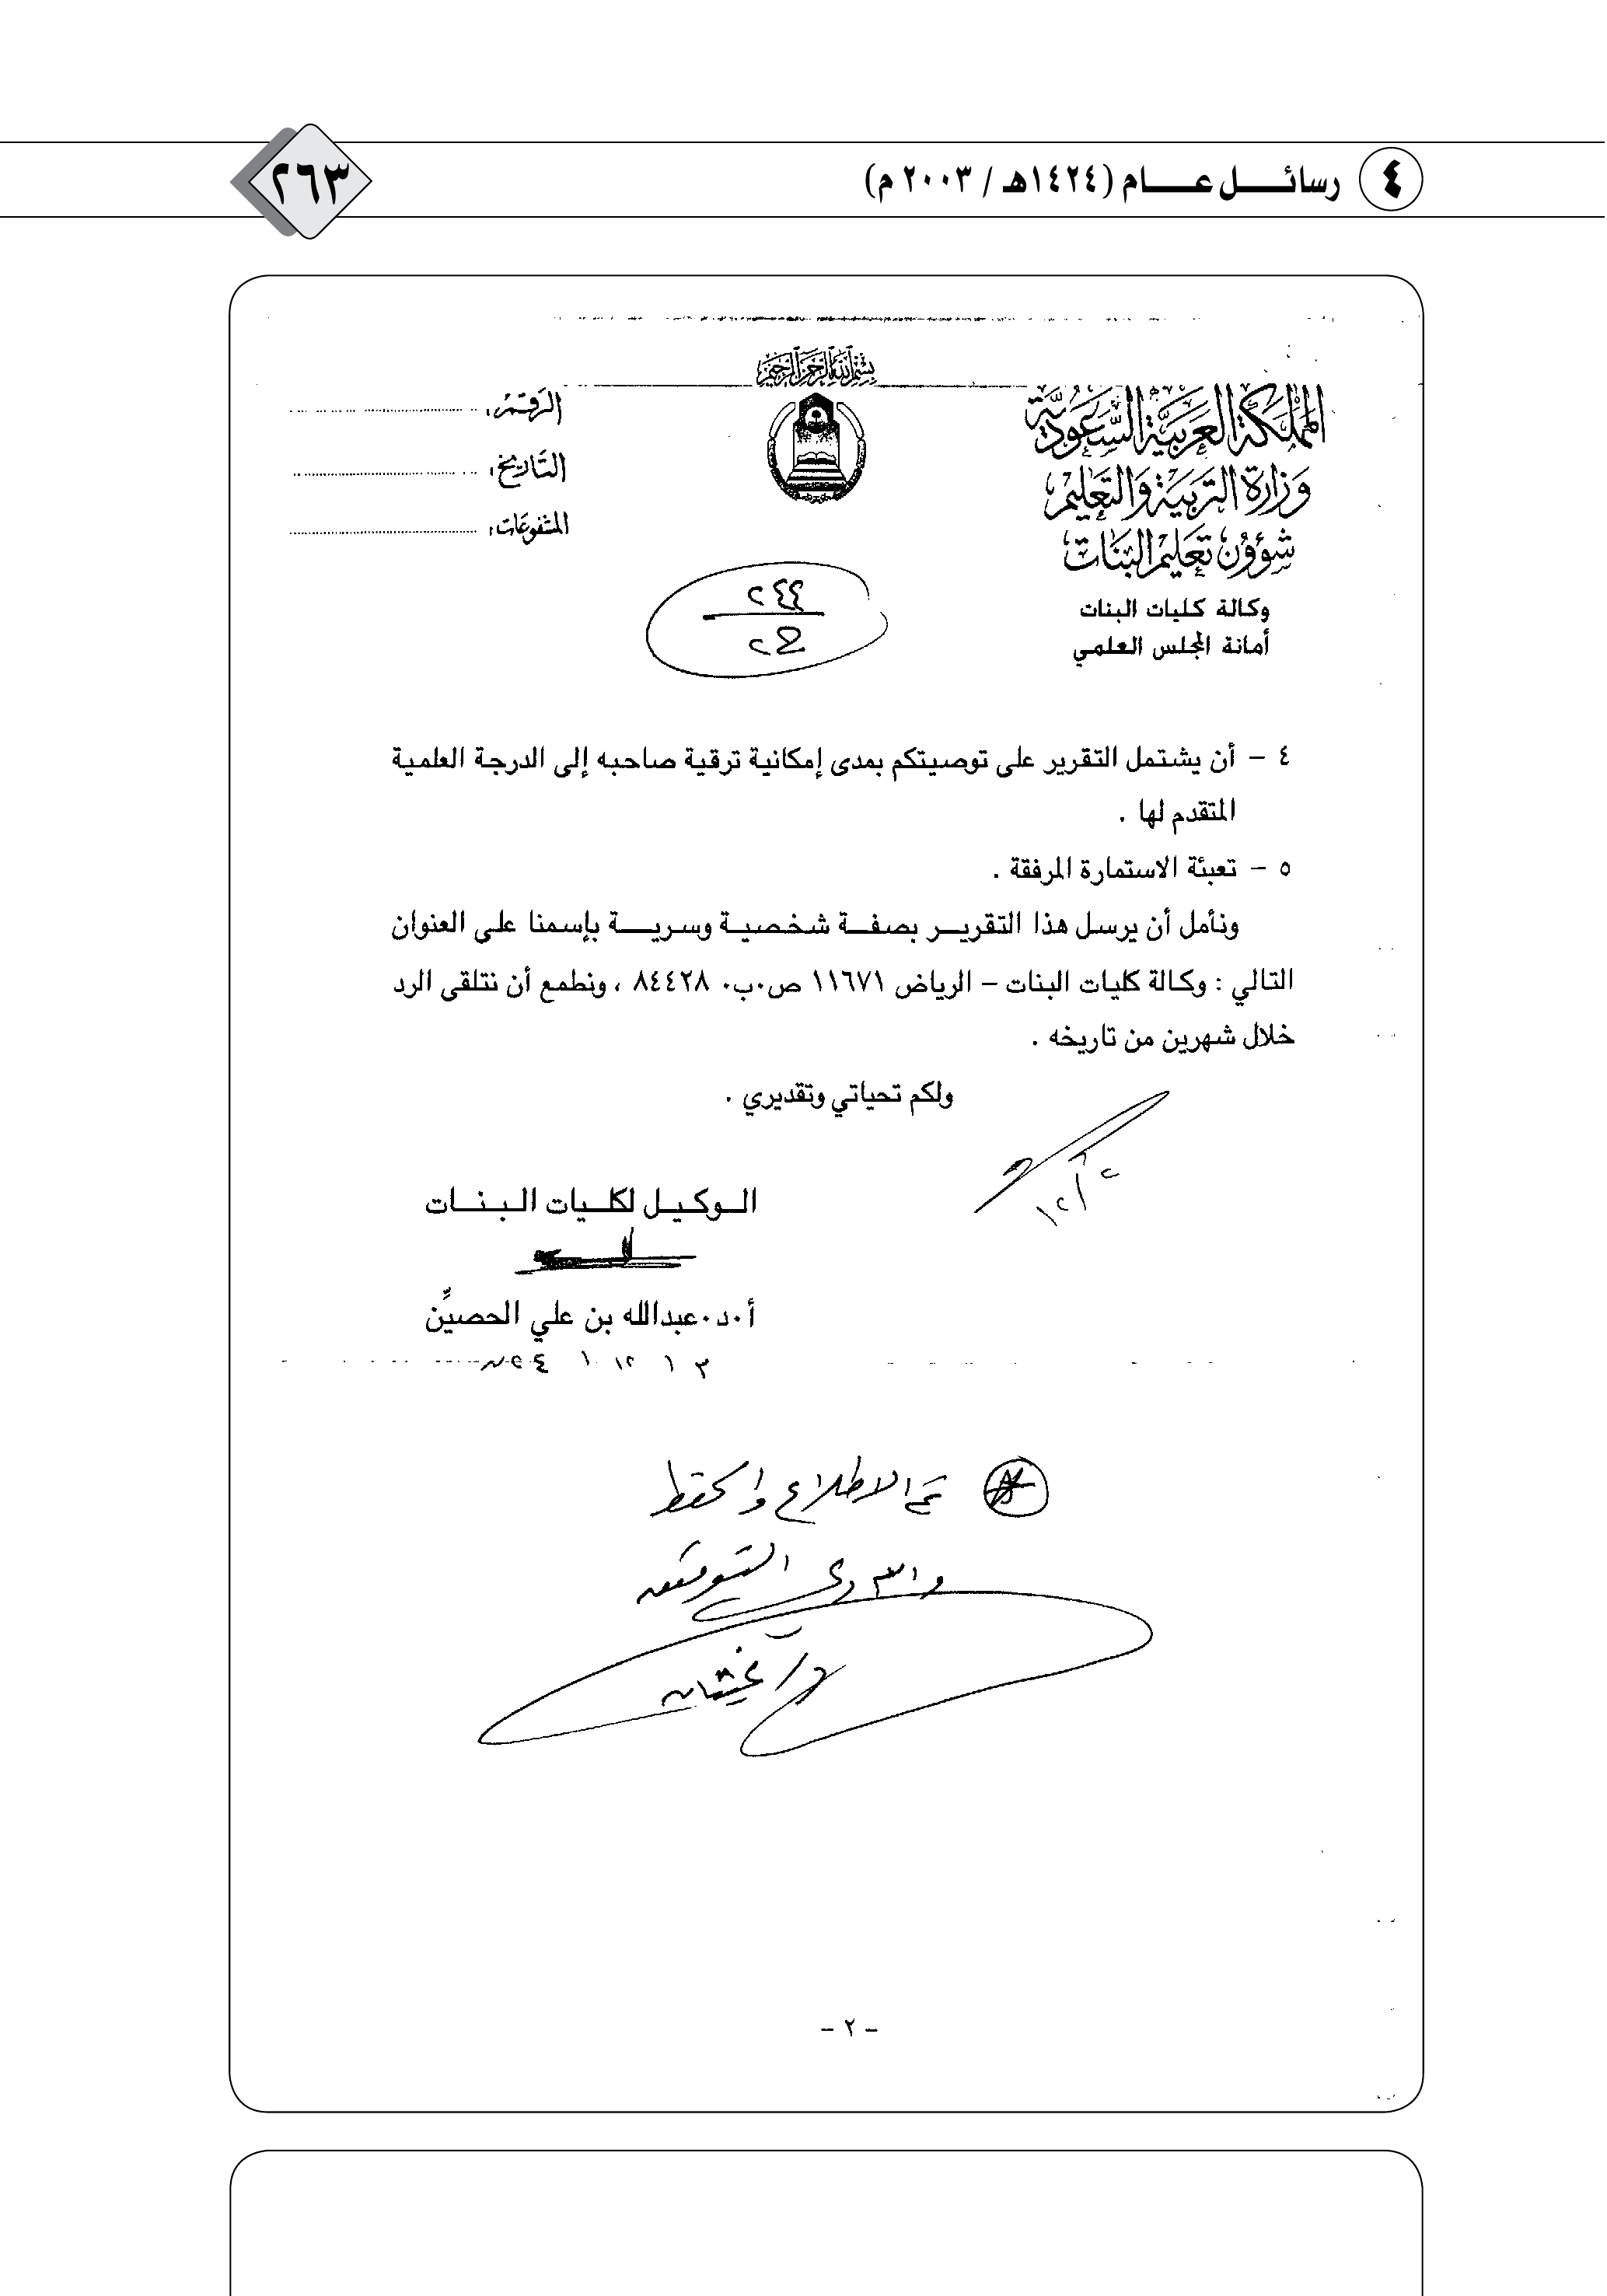 ٤ رسائــــل عــــــام (١٤٢٤هـ / ٢٠٠٣ م)
٢٦٣
بسم الله الرحمن الرحيم
المملكة العربية السعودية
وزارة التربية والتعليم
شؤون تعليم البنات
وكالة كليات البنات
أمانة المجلس العلمي
الرقم:
التاريخ:
المشفوعات:
٢٤٤
٤ – أن يشتمل التقرير على توصيتكم بمدى إمكانية ترقية صاحبه إلى الدرجة العلمية
المتقدم لها .
٥ – تعبئة الاستمارة المرفقة .
ونأمل أن يرسل هذا التقريــر بصفــة شخصيــة وسريــــة بإسمنا على العنوان
التالي : وكالة كليات البنات – الرياض ١١٦٧١ ص.ب. ٨٤٤٢٨ ، ونطمع أن نتلقى الرد
خلال شهرين من تاريخه .
ولكم تحياتي وتقديري .
الــوكـيــل لكلــيات الـبـنــات
أ.د.عبدالله بن علي الحصيِّن
تم الاطلاع والحفظ
التوفيق
– ٢ –